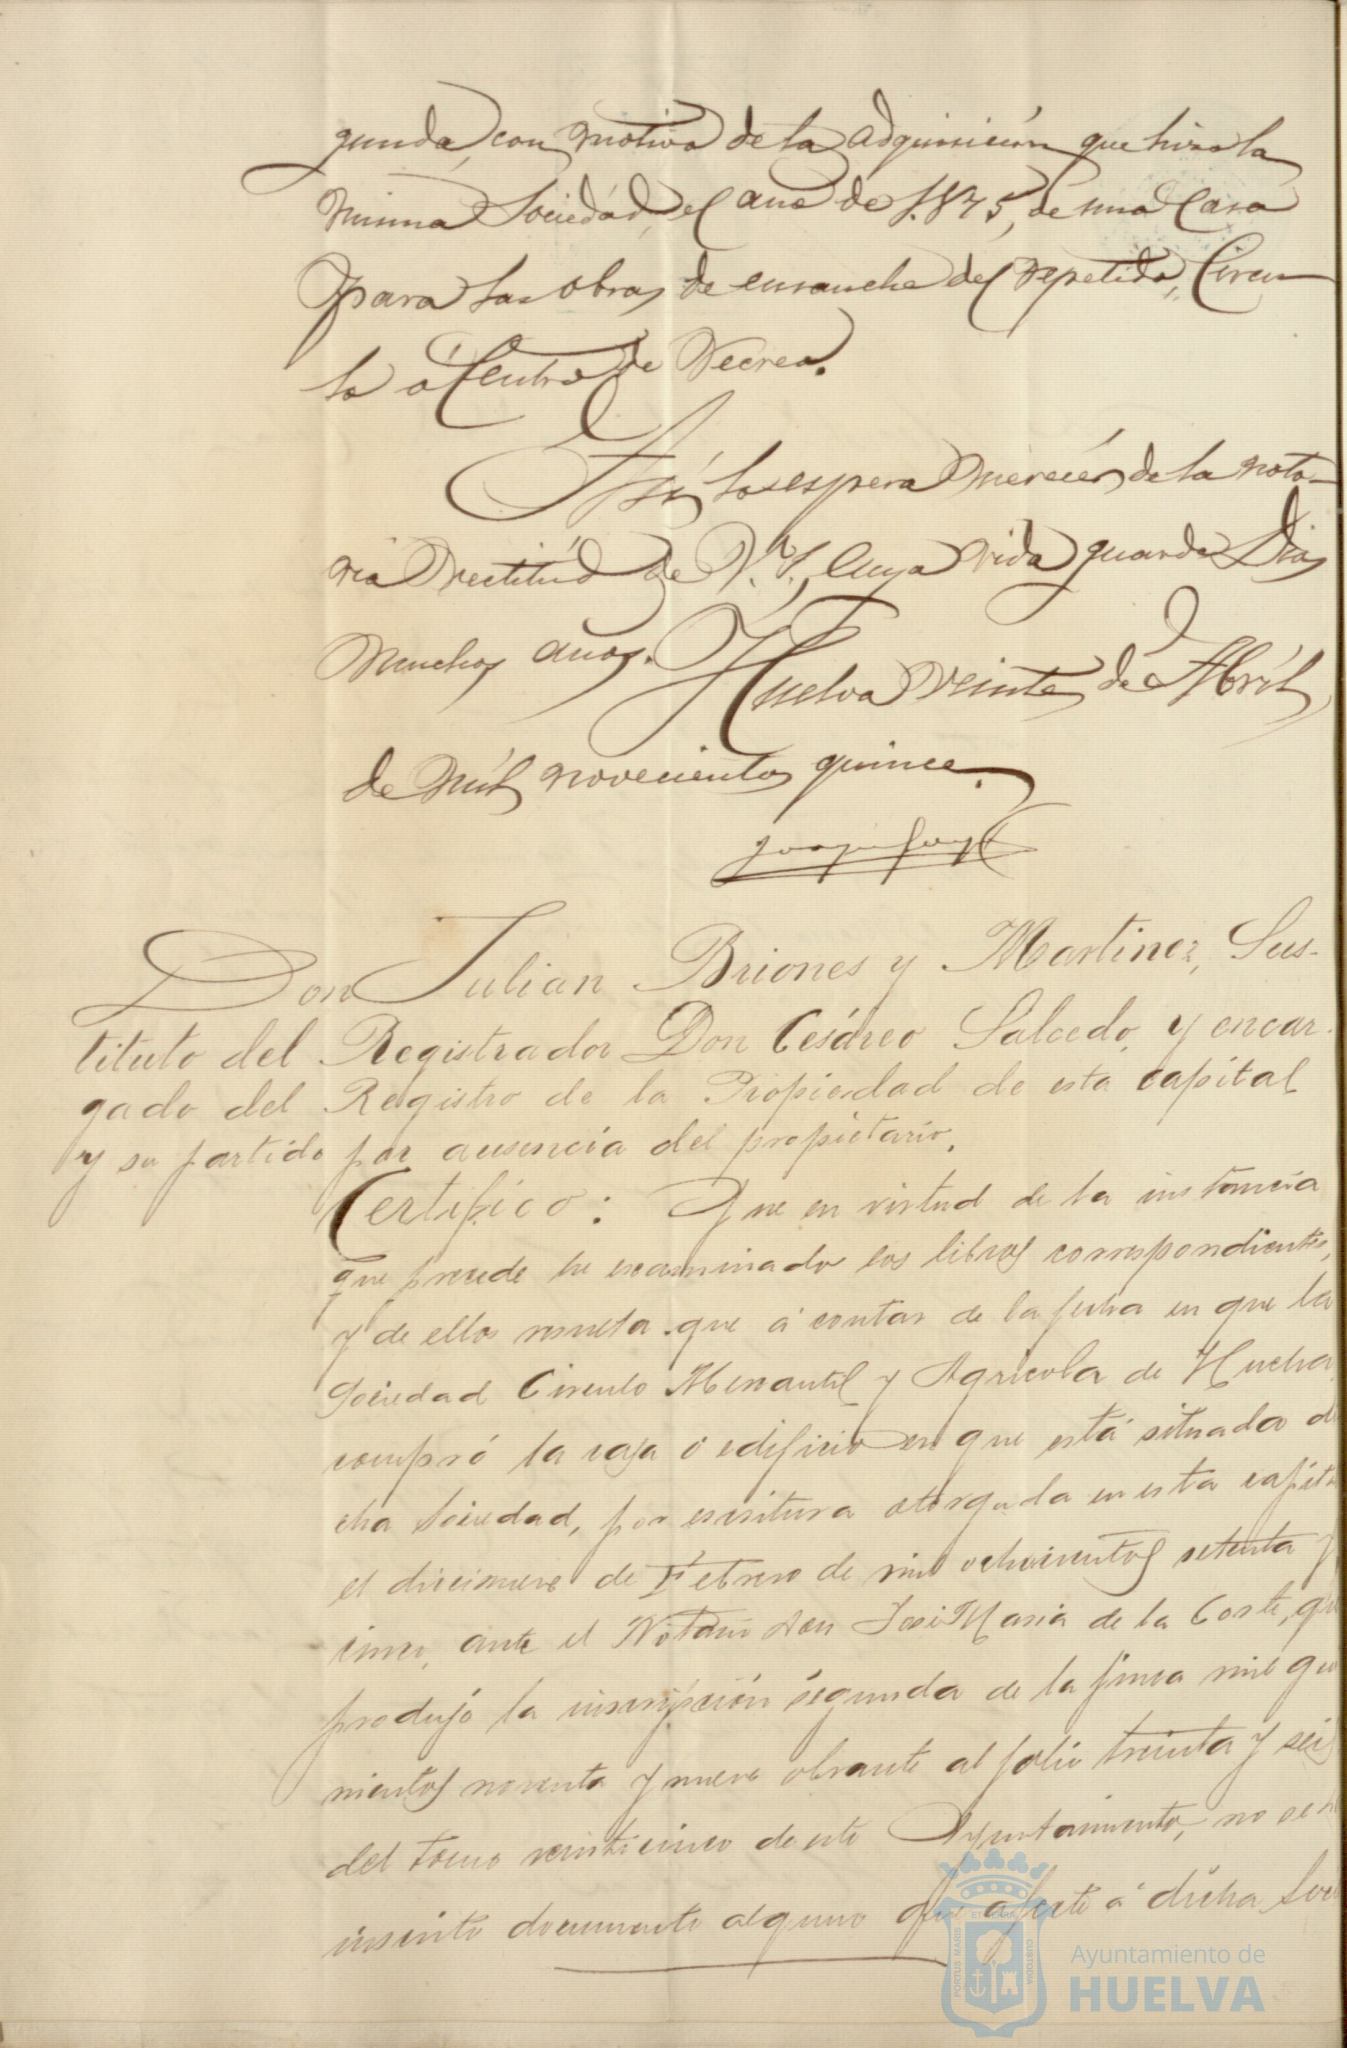 gunda, con motivo de la adquisición que hizo la
misma Sociedád, el año de 1.875, de una Casa
para las obras de ensanche del repetido, Circu-
lo ó Centro de Recreo.
Así lo espera merecér de la noto-
ria rectitúd de V.S., cuya vida guarde Dios
muchos años. Huelva veinte de Abríl
de míl novecientos quince.
Don Julian Briones y Martinez, Sus-
tituto del Registrador Don Cesáreo Salcedo, y encar-
gado del Registro de la Propiedad de esta capital
y su partido por ausencia del propietario.
Certifico: Que en virtud de la instancia
que precede he examinado los libros correspondientes,
y de ellos resulta que á contar de la fecha en que la
Sociedad Circulo Mercantil y Agricola de Huelva,
compró la casa ó edificio en que está situada di
cha Sociedad, por escritura otorgada en esta capita
el diecinueve de Febrero de mil ochocientos setenta y
cinco, ante el Notario don José Maria de la Corte, qu
produjo la inscripción segunda de la finca mil qui
nientos noventa y nueve obrante al folio treinta y seis
del tomo veinticinco de este Ayuntamiento, no se
inscrito documento alguno que afecte á dicha Soci
PORTUS MARIS ET TERRAE CUSTODIA
Ayuntamiento de
HUELVA